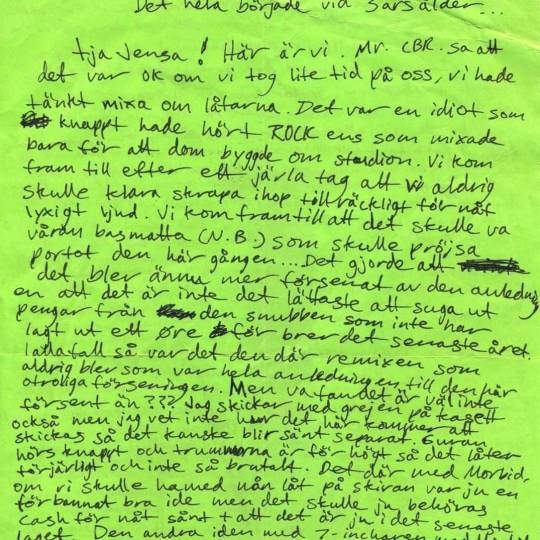 Det hela började vid 3årsålder...
tja Jensa! Här är vi. Mr. CBR. sa att
det var OK om vi tog lite tid på oss, vi hade
tänkt mixa om låtarna. Det var en idiot som
knappt hade hört ROCK ens som mixade
bara för att dom byggde om studion. Vi kom
fram till efter ett järla tag att vi aldrig
skulle klara skrapa ihop tillräckligt för nåt
lyxigt ljud. Vi kom fram till att det skulle va
våran basmatta (N.B.) som skulle pröjsa
portot den här gången... Det gjorde att
det blev ännu mer försenat av den anledning
en att det är inte det lättaste att suga ut
pengar från den snubben som inte har
lagt ut ett øre för brev det senaste året.
iallafall så var det den där remixen som
aldrig blev som var hela anledningen till den här
otroliga förseningen. Men va fan det är väl inte
försent än??? Jag skickar med grejen på kasett
också men jag vet inte hur det här kommer att
skickas så det kanske blir sänt separat. Guran
hörs knappt och trummorna är för högt så det låter
förjärligt och inte så brutalt. Det där med Morbid,
om vi skulle ha med nån låt på skivan var ju en
förbannat bra ide men det skulle ju behövas
cash för nåt sånt + att det är ju i det senaste
laget. Den andra iden med 7-incharen